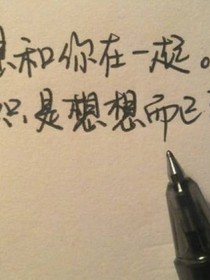 想和你在一起。
只是想想而已